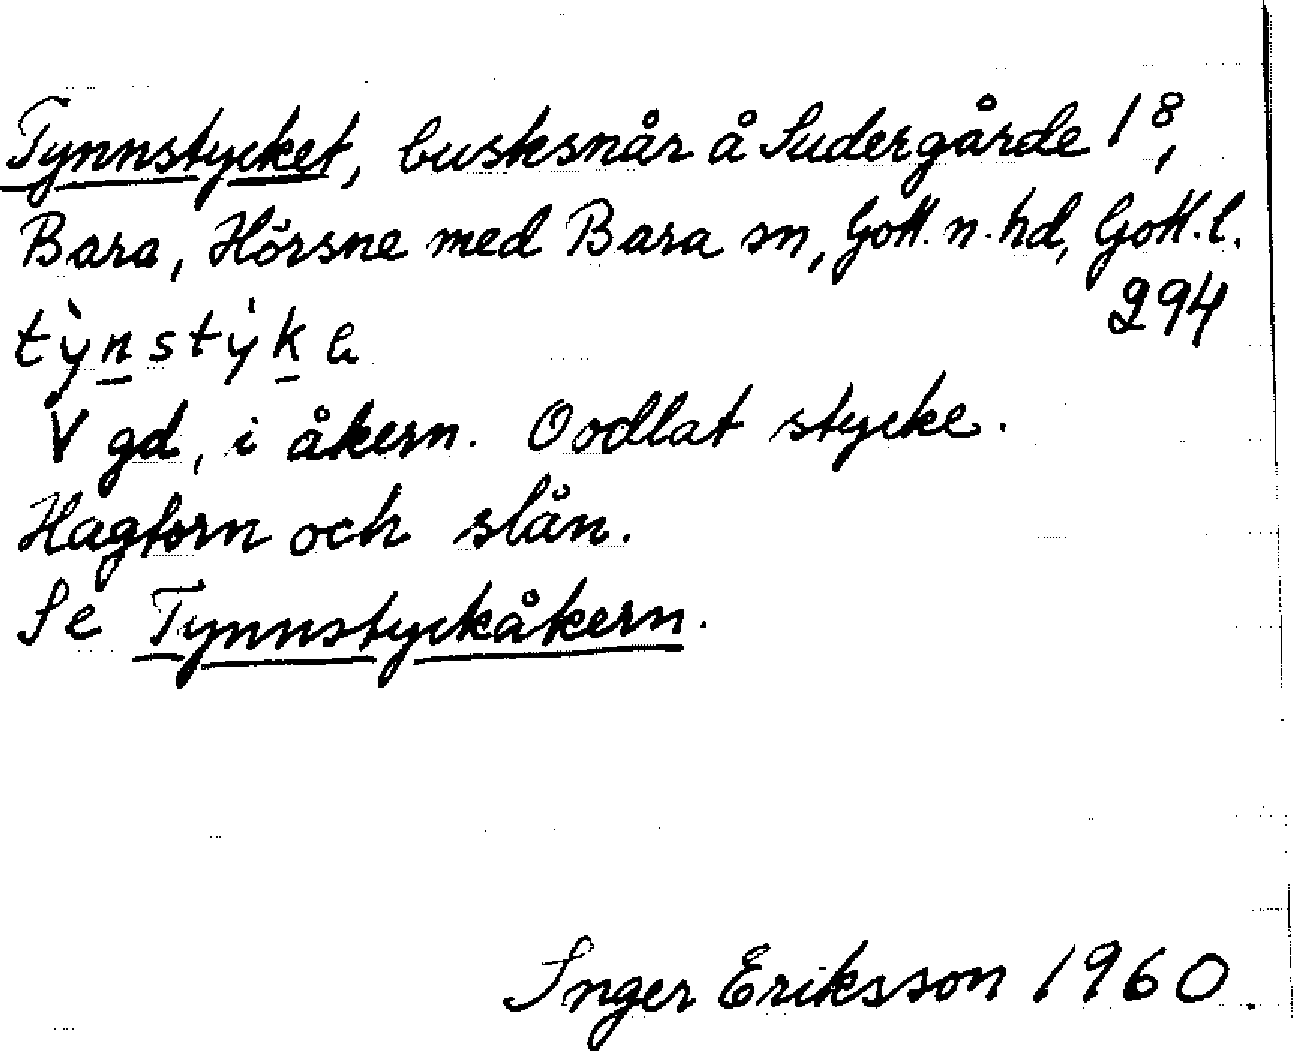 Tynnstycket, busksnår å Sudergårde 1⁸,
Bara, Hörsne med Bara sn, Gotl. n. hd, Gotl. l.
294
V gd, i åkern. Oodlat stycke.
Hagtorn och slån.
Se Tynnstyckåkern.
Inger Eriksson 1960.